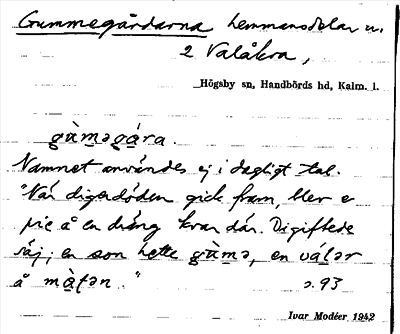 Gummegårdarna hemmansdelar u.
2 Valåkra,
Högsby sn, Handbörds hd, Kalm. l.
gùməgára.
Namnet användes ej i dagligt tal.
"När digerdöden gick fram, blev e
pie å en dräng kvar där. Di giftede
säj; en son hette gùmə, en
å màtən." s. 93
Ivar Modéer 1942